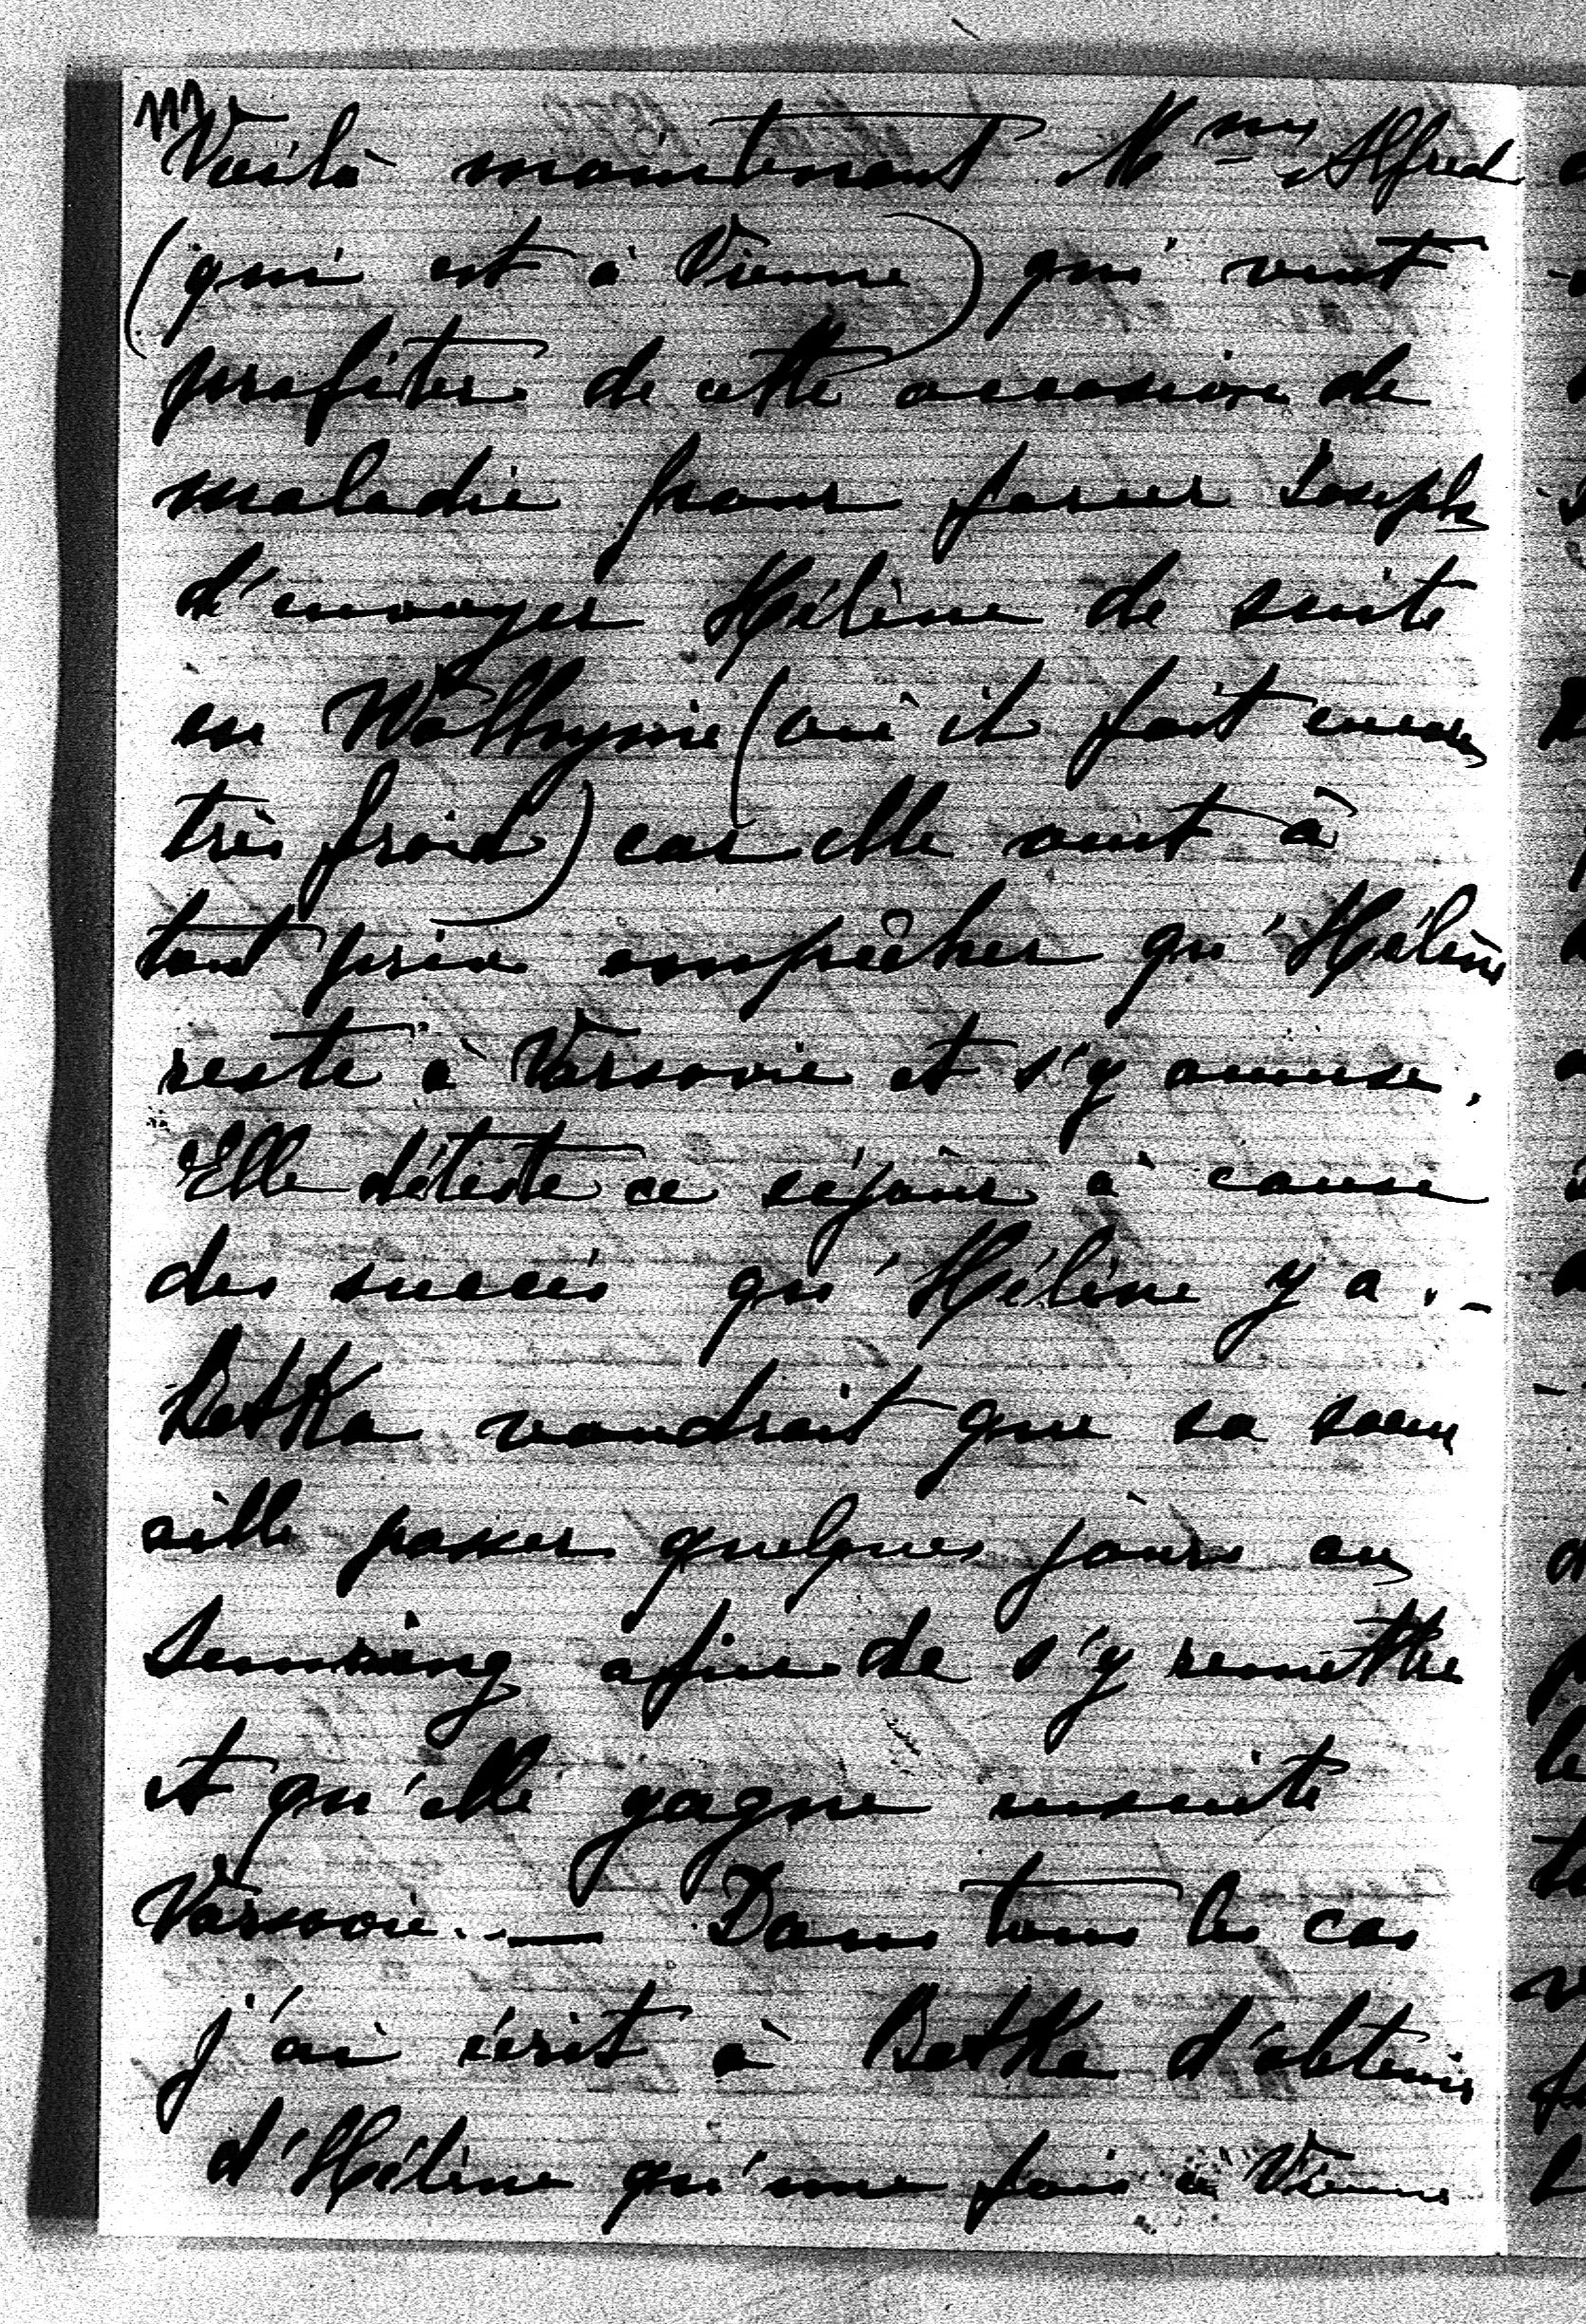 Voilà maintenant Mme Alfred
(qui est à Vienne) qui veut
profiter de cette occasion de
maladie pour forcer Joseph
d'envoyer Hélène de suite
en Wolhynie (où il fait encore
très froid) car elle veut à
tout prix empêcher qu'Hélène
reste à Varsovie et s'y amuse.
Elle déteste ce séjour à cause
des succès qu'Hélène y a. -
Betka voudrait que sa soeur
aille passer quelques jours au
Semmring afin de s'y remettre
et qu'elle gagne ensuite
Varsovie.. — Dans tous les cas
j'ai écrit à Betka d'obtenir
d'Hélène qu'une fois à Vienne